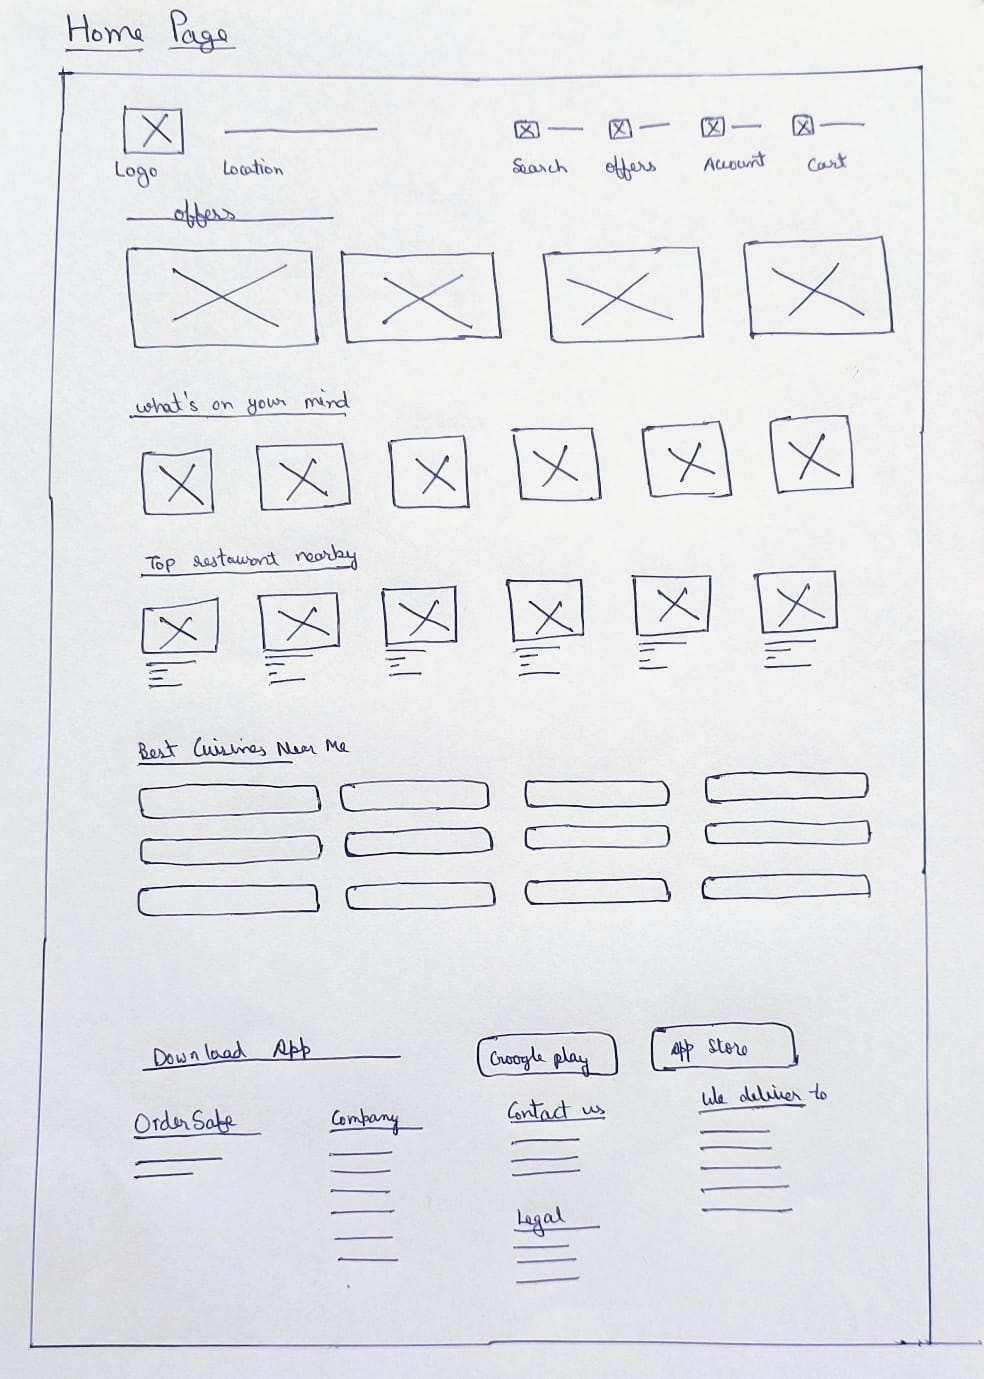 Home Page
Logo
Location
Search
offers
Account
Cart
offers
What's on your mind
Top restaurant nearby
Best Cuisines Near Me
Download App
Google play
App Store
OrderSafe
Company
Contact us
We deliver to
Legal